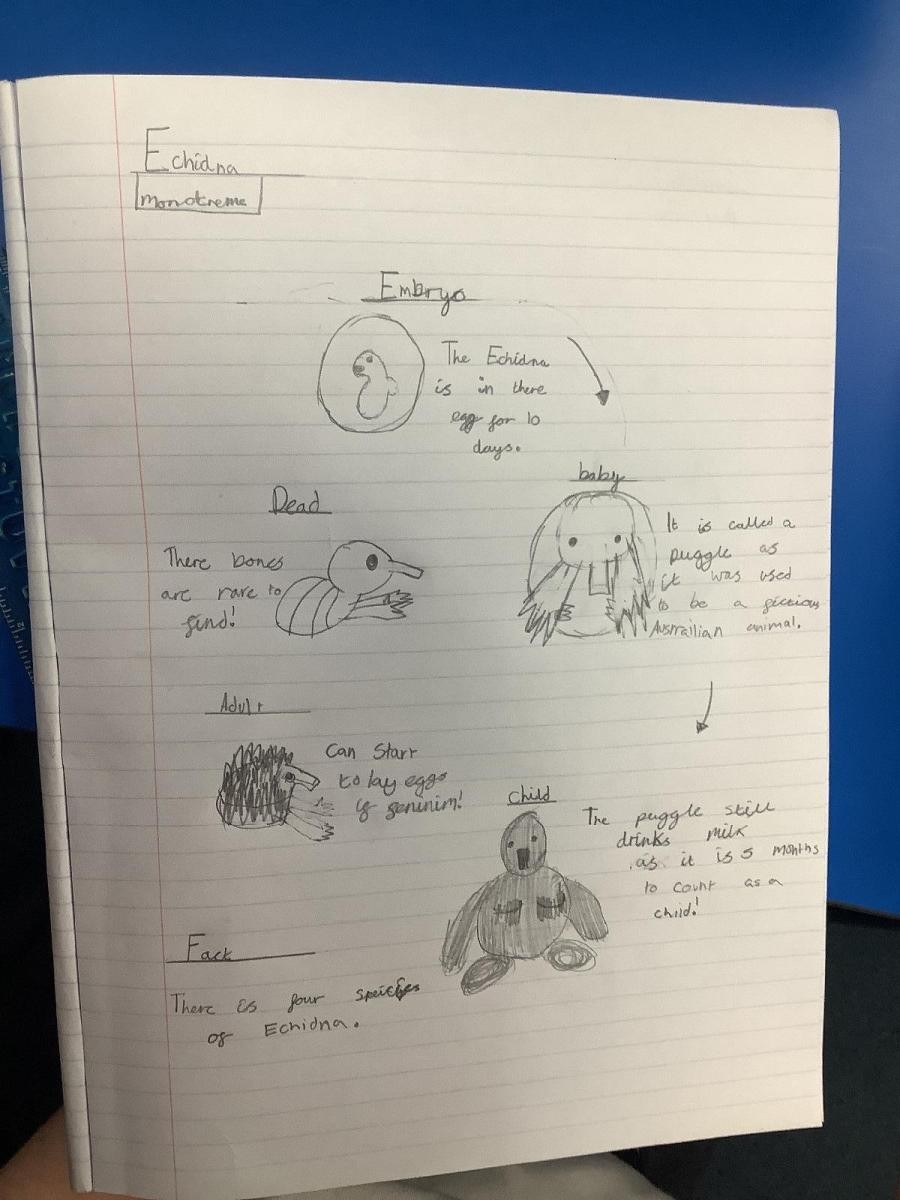 Echidna
monotreme
Embryo
The Echidna
is in there
egg for 10
days.
baby
It is called a
puggle as
it was used
to be a fictious
Austrailian animal.
Dead
There bones
are rare to
find!
Adult
Can Start
to lay eggs
if feminim!
child
The puggle still
drinks milk
as it is 5 months
to count as a
child!
Fact
There is four speicies
of Echidna.